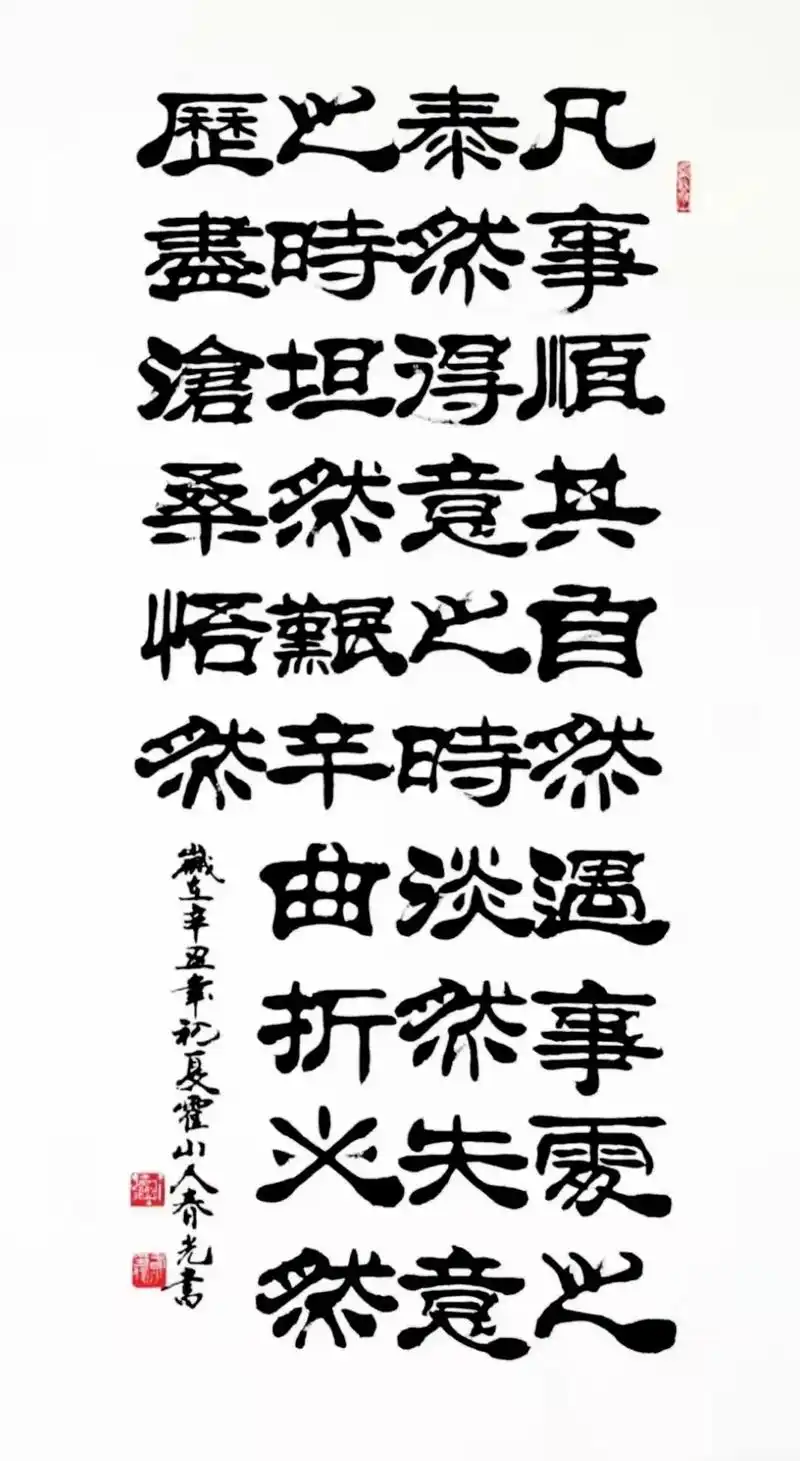 凡事順其自然遇事處之
泰然得意之時淡然失意
之時坦然艱辛曲折必然
歷盡滄桑悟然
歲在辛丑年初夏霍山人春光書